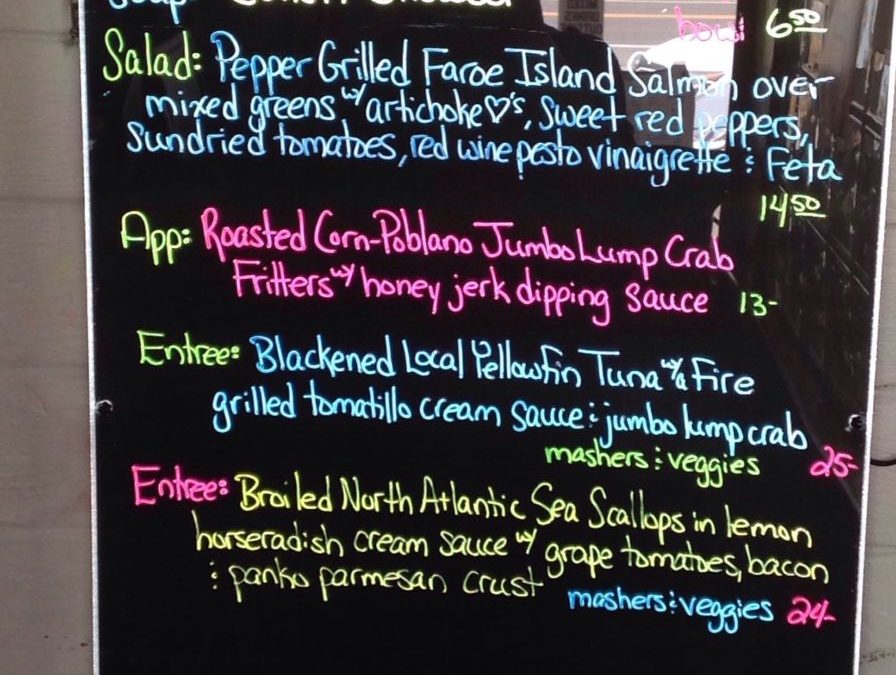 bowl 6.50
Salad: Pepper Grilled Faroe Island Salmon over
mixed greens w/ artichoke ♡'s, sweet red peppers,
sundried tomatoes, red wine pesto vinaigrette & Feta
14.50
App: Roasted Corn-Poblano Jumbo Lump Crab
Fritters w/ honey jerk dipping sauce 13-
Entree: Blackened Local Yellowfin Tuna w/ a Fire
grilled tomatillo cream sauce & jumbo lump crab
mashers & veggies 25-
Entree: Broiled North Atlantic Sea Scallops in lemon
horseradish cream sauce w/ grape tomatoes, bacon
& panko parmesan crust
mashers & veggies 24-